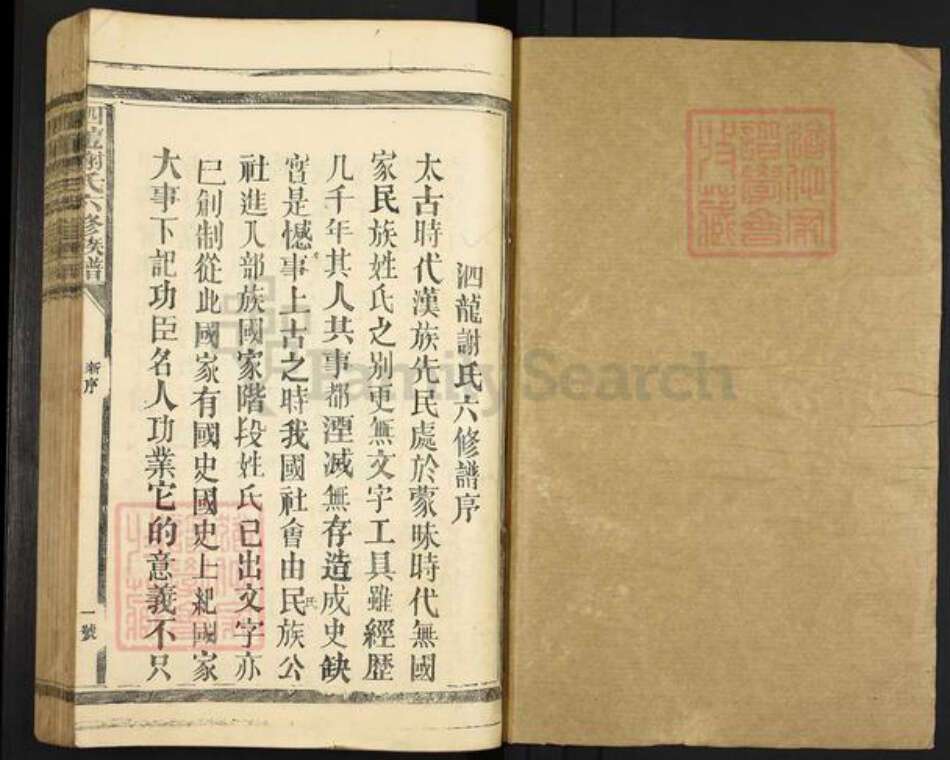 泗龍謝氏六修譜序
太古時代漢族先民處於蒙昧時代無國
家民族姓氏之别更無文字工具雖經歷
几千年其人共事都湮滅無存造成史缺
宮是憾事上古之時我國社會由民族公
氏
社進入部族國家階段姓氏已出文字亦
巳創制從此國家有國史國史上紀國家
大事下記功臣名人功業它的意義不只
謝氏六修族譜
新序
一號
FamilySearch